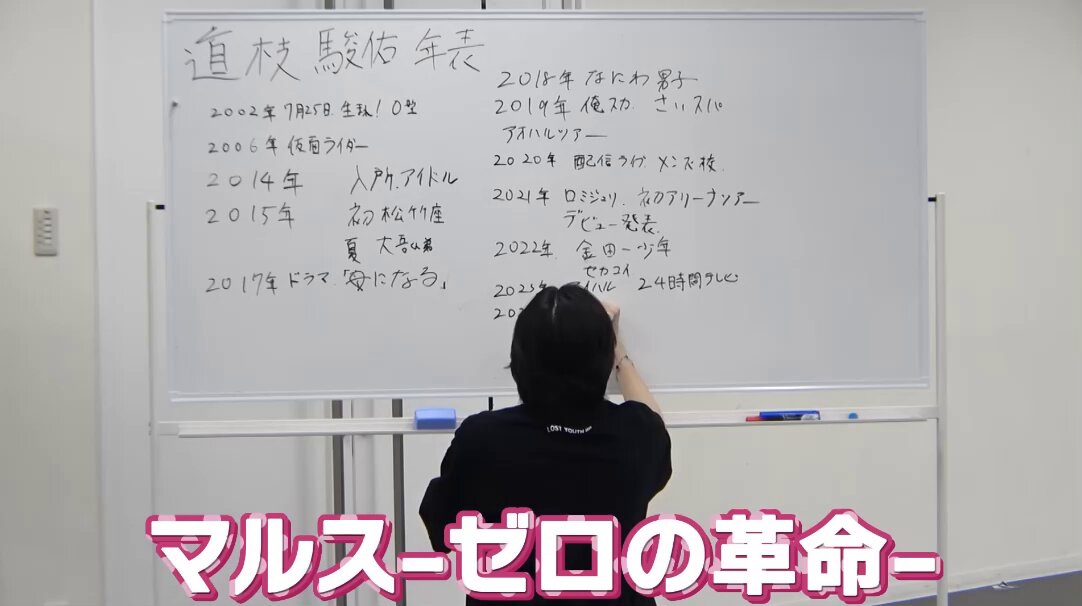 道枝駿佑年表
2002年7月25日生誕!O型
2006年仮面ライダー
2014年 入所.アイドル
2015年 初松竹座
夏 大吾
2017年ドラマ「母になる」
2018年 なにわ男子
2019年 俺スカ さいスパ
アオハルツアー
2020年 配信ライブ.メンズ校.
2021年 ロミジュリ.初アリーナツアー
デビュー発表.
2022年.金田一少年
セカコイ
2023年 24時間テレビ
LOST YOUTH
マルス-ゼロの革命-